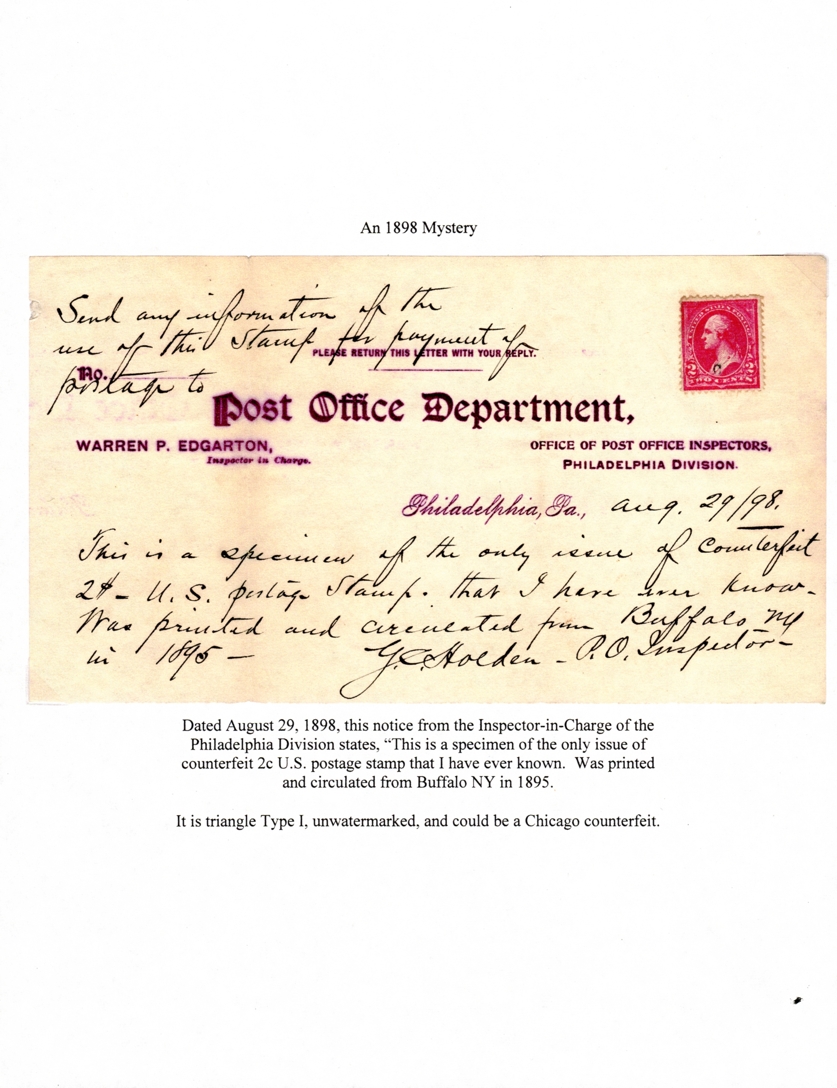 An 1898 Mystery
Send any information of the
use of this Stamp for payment of
PLEASE RETURN THIS LETTER WITH YOUR REPLY.
No.
postage to
Post Office Department,
WARREN P. EDGARTON,
Inspector in Charge.
OFFICE OF POST OFFICE INSPECTORS,
PHILADELPHIA DIVISION.
Philadelphia, Pa., Aug. 29/98.
This is a specimen of the only issue of Counterfeit
2¢ - U.S. postage Stamp. that I have ever know-
Was printed and circulated from Buffalo NY
in 1895 - G.C. Holden - P.O. Inspector -
UNITED STATES POSTAGE
2 TWO CENTS 2
Dated August 29, 1898, this notice from the Inspector-in-Charge of the
Philadelphia Division states, “This is a specimen of the only issue of
counterfeit 2c U.S. postage stamp that I have ever known.  Was printed
and circulated from Buffalo NY in 1895.
It is triangle Type I, unwatermarked, and could be a Chicago counterfeit.